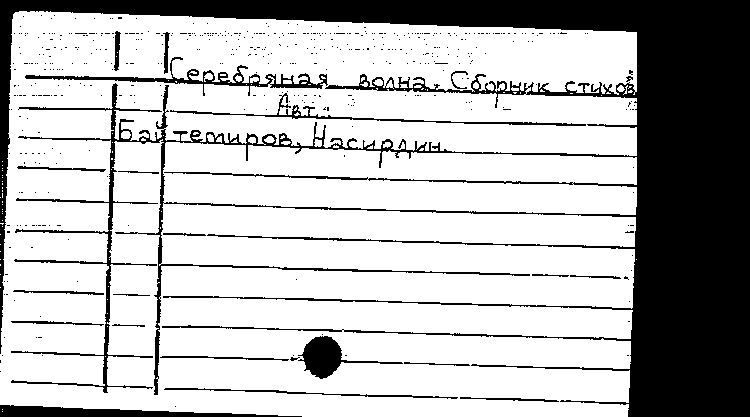 Серебряная волна. Сборник стихов.
Авт.:
Байтемиров, Насирдин.